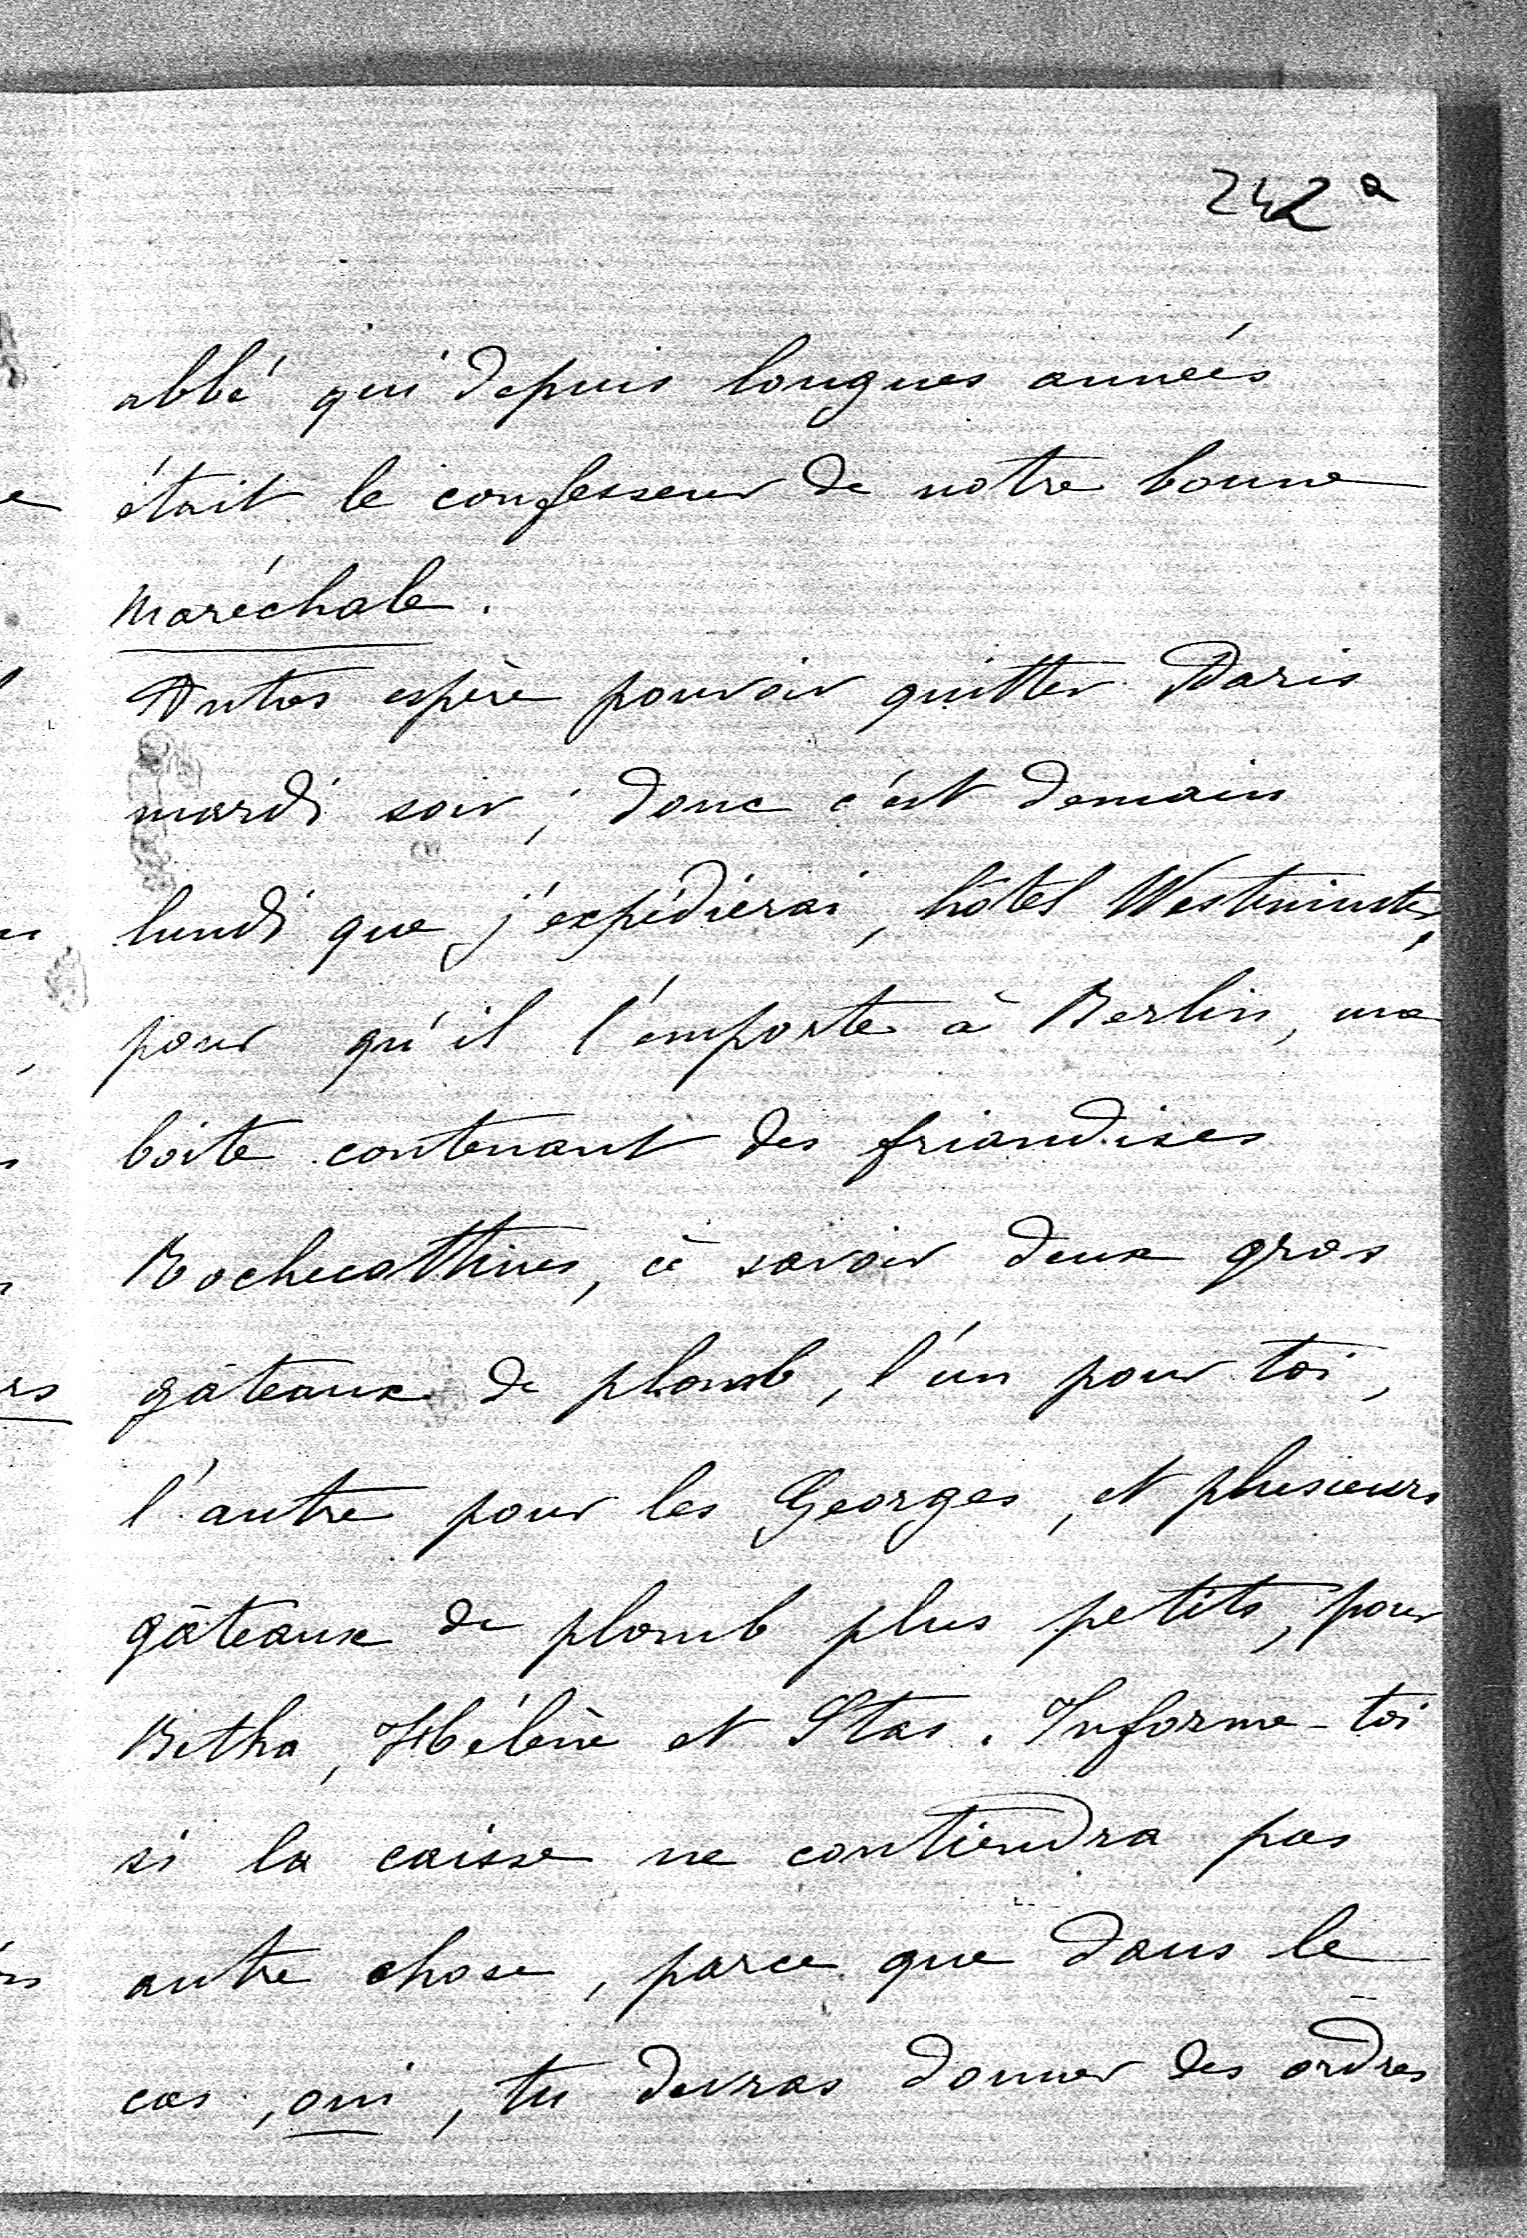 242a
abbé qui depuis longues années
était le confesseur de notre bonne
Maréchale.
Antos espère pouvoir quitter Paris
mardi soir; donc c'est demain
lundi que j'expédierai, hôtel Westminster,
pour qu'il l'emporte à Berlin, une
boite contenant des friandises
Rochecottines, à savoir deux gros
gâteaux de plomb, l'un pour toi,
l'autre pour les Georges, et plusieurs
gâteaux de plomb plus petits, pour
Betka, Hélène et Stas. Informe-toi
si la caisse ne contiendra pas
autre chose, parce que dans le
cas, oui, tu devras donner des ordres